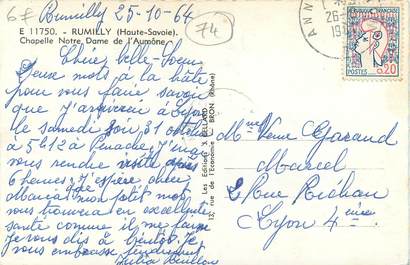 6F
Rumilly 25-10-64
74
E 11750. - RUMILLY (Haute-Savoie).
Chapelle Notre Dame de l'Aumône.
Chère belle-Soeur
Deux mots à la hâte
pour vous faire savoir
que j'arriverai à Lyon
le samedi soir 31 octobre
à 5h12 à Perrache. J'irai
vous rendre visite après
6 heures. J'espère chère
que mon petit mot
vous trouvera en excellente
santé comme il me
Je vous dis à bientôt. Je
vous embrasse tendrement
13, rue de l'Economie BRON (Rhône)
Les Editions J. BELLARD
ANN
26-
19
REPUBLIQUE FRANÇAISE
POSTES 0,20
Mme Veuve
Marcel
2 Rue
Lyon 4ème